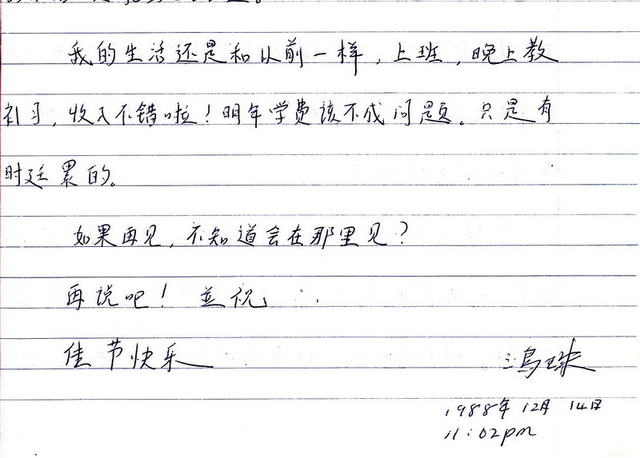 我的生活还是和以前一样，上班，晚上教
补习，收入不错啦！明年学费该不成问题。只是有
时廷累的。
如果再见，不知道会在那里见？
再说吧！並祝
佳节快乐
1988年12月14日
11:02pm